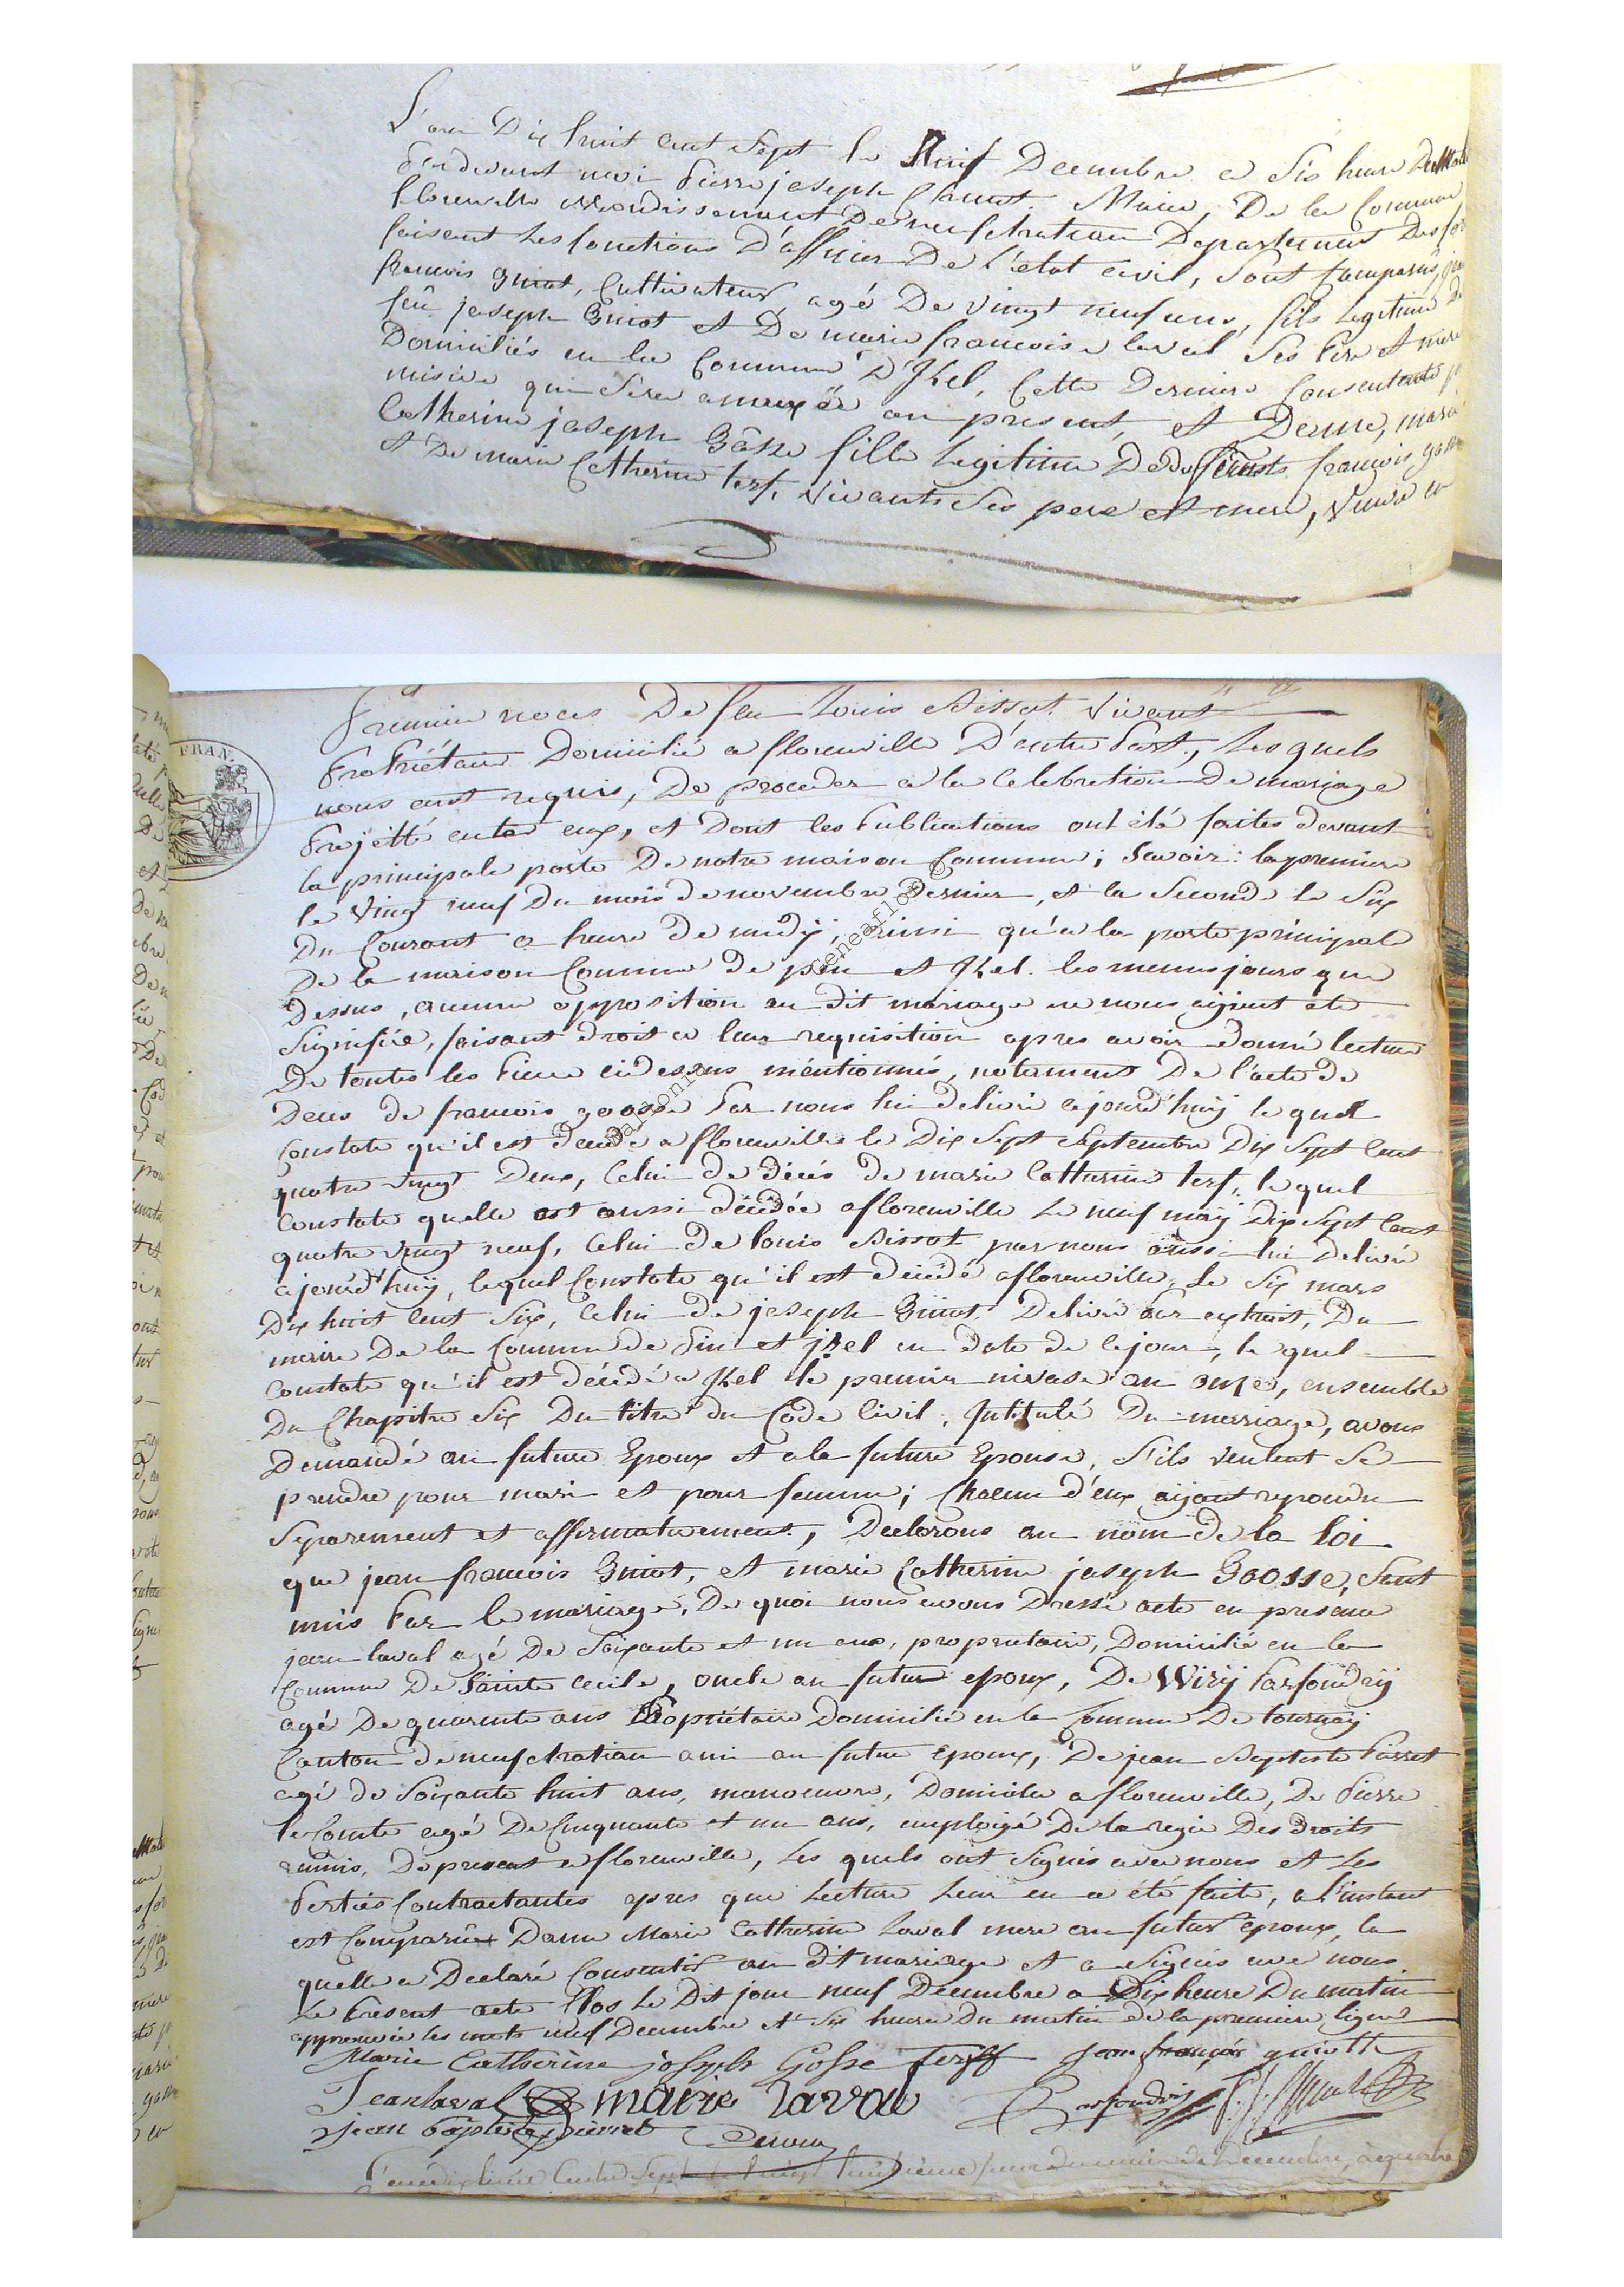 L'an Dix huit cent Sept le Neuf Decembre a Six heure Du Mat
Pardevant moi Pierre joseph Maire, De la Commune
florenville arrondissement De neufchateau Departement Des for
faisant les fonctions D'officier De l'etat civil, Sont Comparus, je
francois Guiot, Cultivateur agé De vingt neuf ans, fils legitime De
feû joseph Guiot et De marie francoise laval Ses Pere et mere
Domiciliés en la Commune D'Izel, Cette Derniere Consentante p
misive qui Sera annexée au present, et Deme, marie
Catherine joseph Gosse fille legitime De Defunts francois goss
et De marie Catherine terf, vivants Ses pere et mere, veuve en
Premiere noces De feu Louis Bissot vivant
Proprietaire Domicilié a florenville D'autre Part, Lesquels
nous ont requis, De proceder a la Celebration De mariage
Projetté entre eux, et Dont les Publications ont été faites devant
la principale porte De notre maison Commune; Savoir: la premiere
le Vingt neuf Du mois de novembre Dernier, et la Seconde le Six
Du Courant a heure De midÿ, ainsi qu'a la porte principale
De la maison Commune de pin et Izel. les memes jours que
Dessus, aucune opposition au dit mariage ne nous aijant été
Signifiée, faisant droit a leur requisition apres avoir donné lecture
De toutes les Piece cidessus mentionnés, notament De l'acte de
Deces de francois goosse Par nous lui delivré cejourd'huij le quel
Constate qu'il est decedé a florenville le Dix Sept Septembre Dix Sept Cent
quatre vingt Deux, Celui de décés de marie Catherine terf, le quel
Constate quelle est aussi décédée a florenville Le neuf maij Dix Sept Cent
quatre vingt neuf, Celui de louis Bissot par nous aussi lui delivré
cejourd'huij, lequel Constate qu'il est décédé a florenville, Le Six mars
Dix huit Cent Six, Celui de joseph Guiot Delivré Par extrait, Du
maire De la Commune de Pin et jzel en date de ce jour, le quel
Constate qu'il est décédé a Izel le premier nivose an onze, ensemble
Du Chapitre Six Du titre du Code Civil, Intitulé Du mariage, avons
Demandé au future Epoux et a la future Epouse, S'ils veulent Se
prendre pour mari et pour femme; Chacun d'eux aijant repondu
Separement et affirmativement, Declarons au nom de la loi
que jean francois Guiot, et marie Catherine joseph Goosse, Sont
unis Par le mariage, De quoi nous avons Dressé acte en presence
jean laval agé De Soixante et un ans, proprietaire, Domicilié en la
Commune De Sainte Cecile, oncle au futur epoux, De Wirij Parfondrij
agé De quarente ans Propriétaire Domicilié en la Commune De tournaij
Canton de neufchateau ami au futur epoux, De jean Baptiste Pierret
agé de Soixante huit ans, manoeuvre, Domicilié a florenville, De Pierre
leComte agé De Cinquante et un ans, emploijé De la regie Des droits
reunis, De present a florenville, Les quels ont Signés avec nous et Les
Parties Contractantes apres que Lecture Leur en a été faite, a l'instant
est Comparûe Dame Marie Catherine Laval mere au futur Epoux, la
quelle a Declaré Consentir au dit mariage et a Signés avec nous
Le Present acte Clos Le Dit jour neuf Decembre a Dix heure Du matin
approuvée les mots neuf Decembre et Six heure Du matin de la premiere ligne
Marie Catherine joseph Gosse Terff jean françois guiotte
Jean laval marie Laval Parfondrij
jean baptiste Pierret